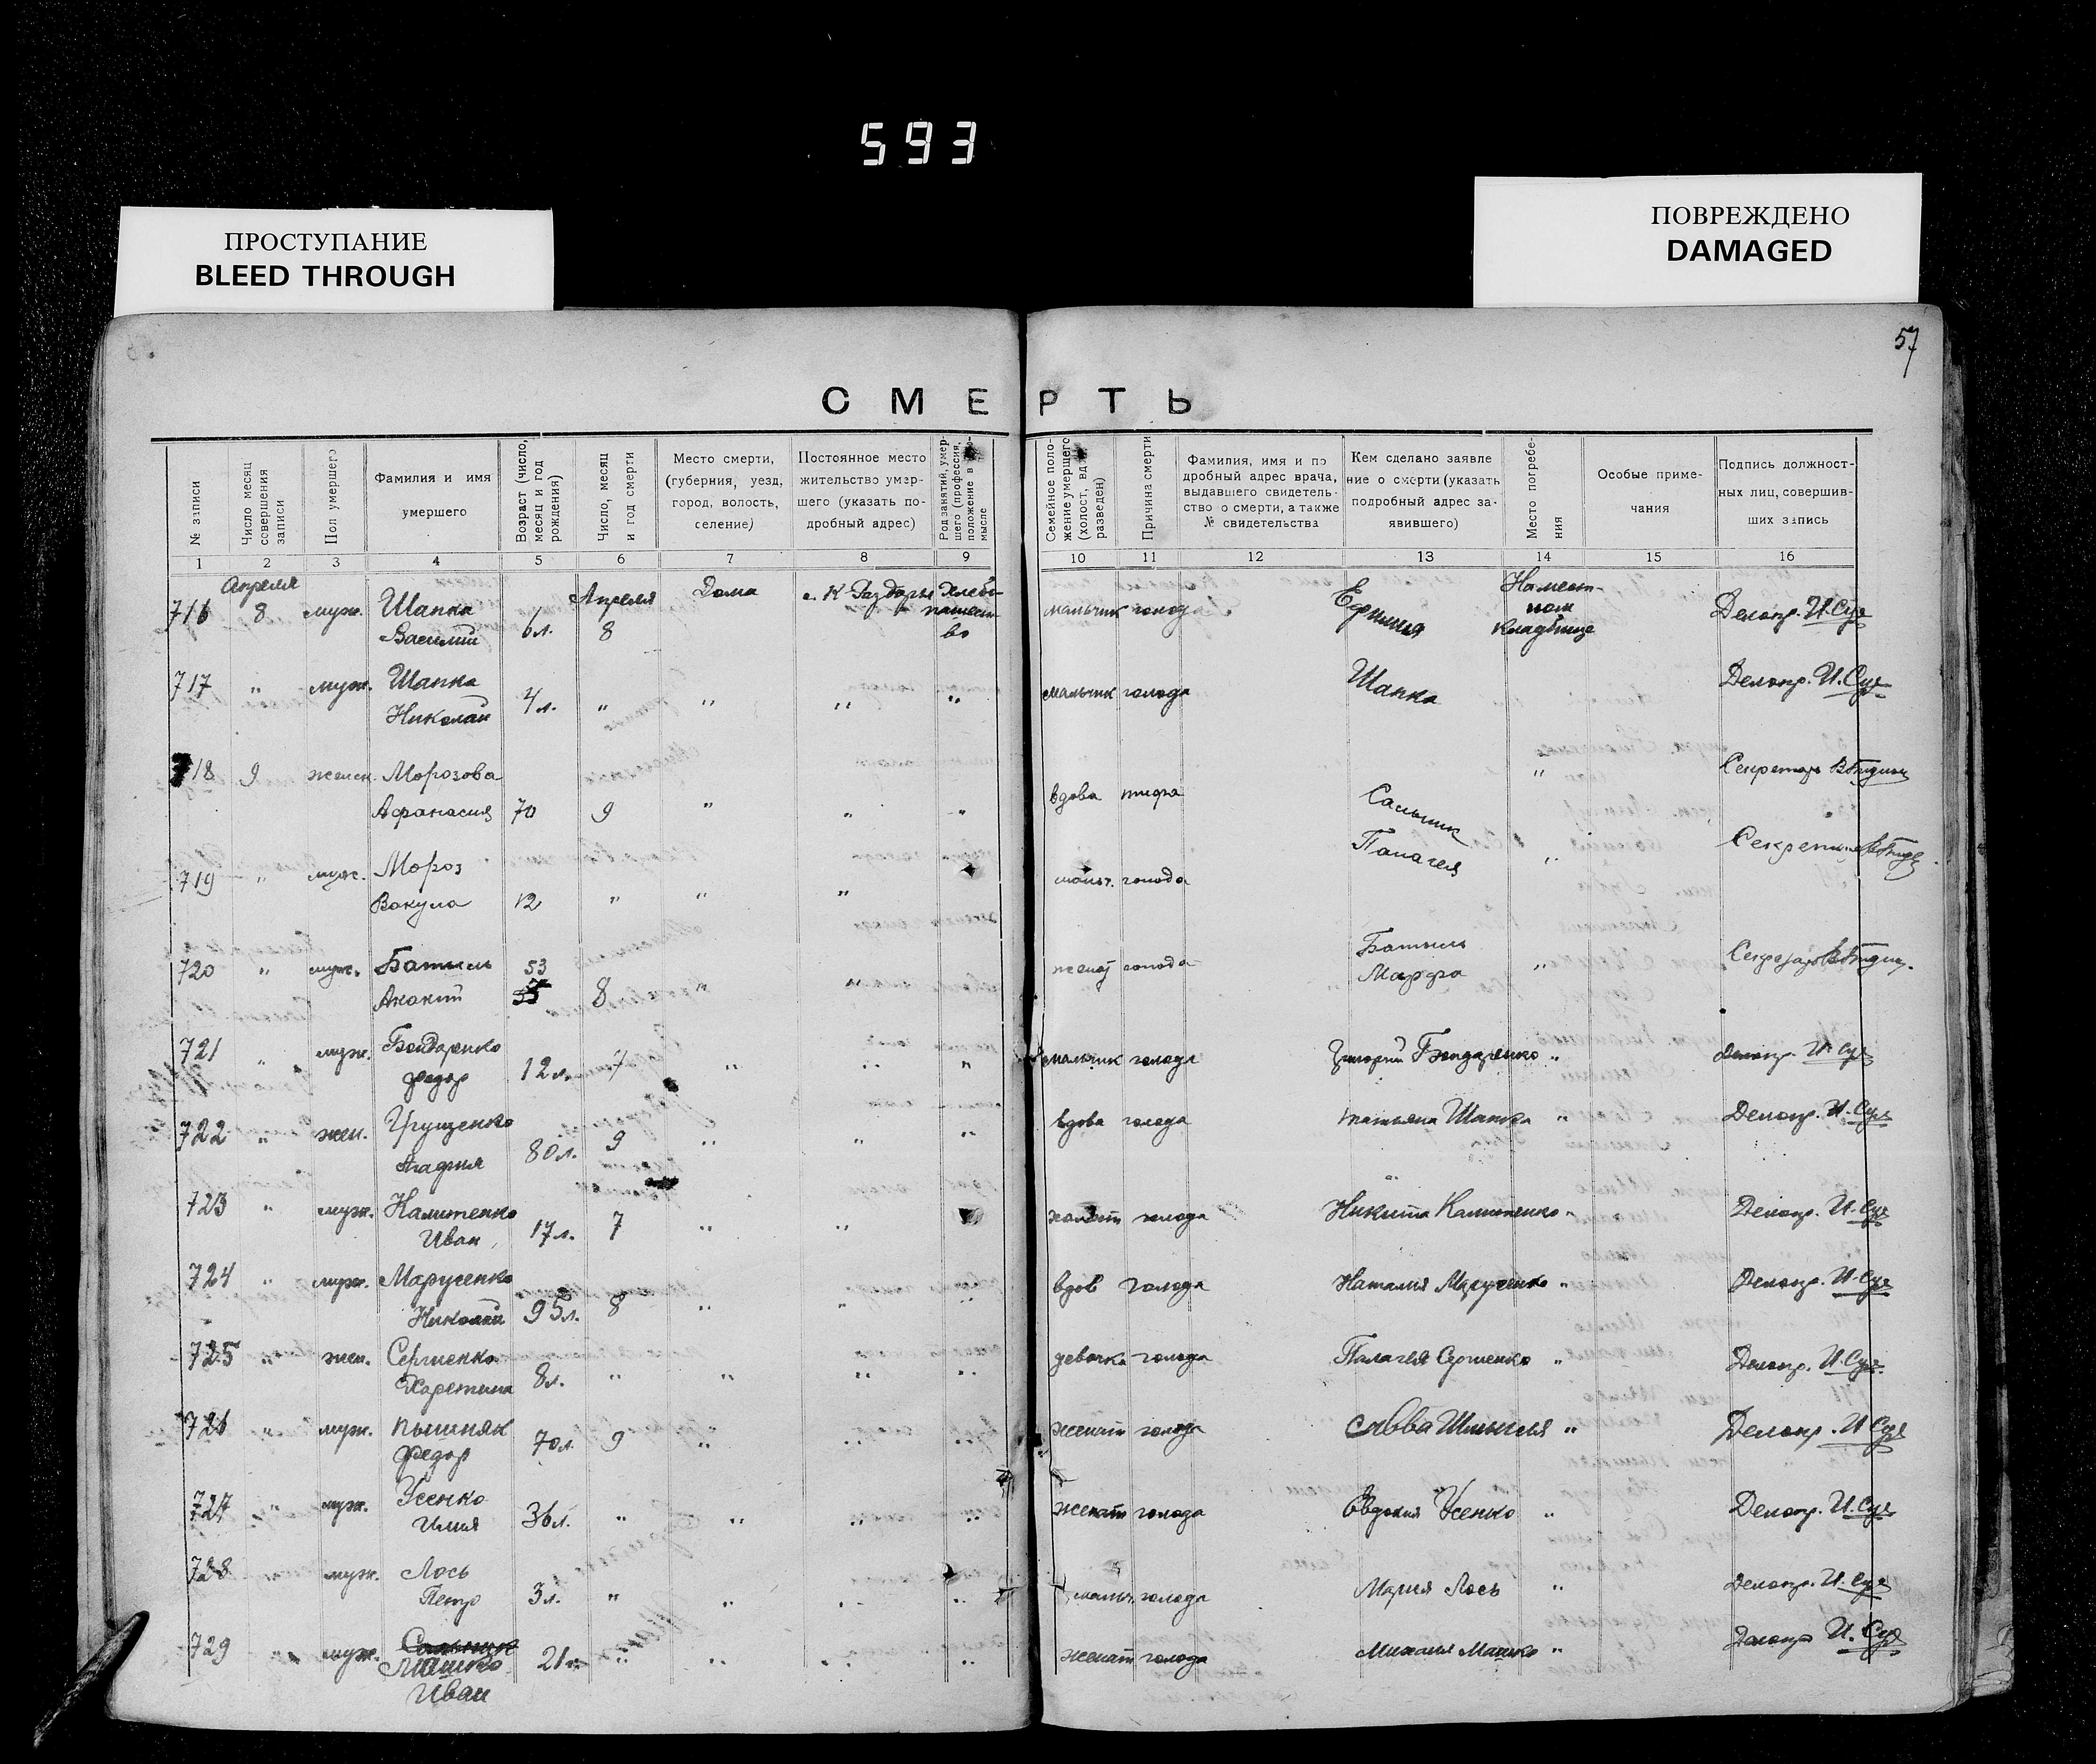 593
ПРОСТУПАНИЕ
BLEED THROUGH
ПОВРЕЖДЕНО
DAMAGED
57
СМЕРТЬ
№ записи
Число месяц совершения записи
Пол умершего
Фамилия и имя умершего
Возраст (число, месяц и год рождения)
Число, месяц и год смерти
Место смерти, (губерния, уезд, город, волость, селение)
Постоянное место жительство умершего (указать подробный адрес)
Род занятий, умершего (профессия, положение в промысле
Семейное положение умершего (холост, вдов, разведен)
Причина смерти
Фамилия, имя и подробный адрес врача, выдавшего свидетельство о смерти, а также № свидетельства
Кем сделано заявление о смерти (указать подробный адрес заявившего)
Место погребения
Особые примечания
Подпись должностных лиц, совершивших запись
1 2 3 4 5 6 7 8 9 10 11 12 13 14 15 16
716 Апреля 8 муж. Шапка Василий 6 л. Апреля 8 Дома мальчик голода Ефимия Делопр. И. Суя
717 " муж. Шапка Николай 4 л. " " " " мальчик голода Шапка Делопр. И. Суя
718 9 женск. Морозова Афанасия 70 9 " " " вдова тифа " Секретарь
719 " муж. Мороз Вакула 12 " " " мальч. голода Сальник Палагея " Секретарь
720 " муж. Акакий 53 8 " " голода Марфа " Секретарь
721 " муж. Бондаренко Федор 12 л. 7 " " " мальчик голода Григорий Бондаренко " Делопр. И. Суя
722 " жен. Грущенко Агафия 80 л. 9 " " " вдова голода Татьяна Шапка " Делопр. И. Суя
723 " муж. Калитенко Иван 17 л. 7 " " холост голода Никита Калитенко " Делопр. И. Суя
724 " муж. Марусенко Николай 95 л. 8 " " " вдов голода Наталия Марусенко " Делопр. И. Суя
725 " жен. Сергиенко Харетина 8 л. " " " " девочка голода Палагея Сергиенко " Делопр. И. Суя
726 " муж. Пышняк Федор 70 л. 9 " " " женат голода Савва " Делопр. И. Суя
727 " муж. Усенко Илия 36 л. " " " " женат голода Евдокия Усенко " Делопр. И. Суя
728 муж. Лось Петро 3 л. " " " " мальч. голода Мария Лось " Делопр. И. Суя
729 " муж. Машко Иван 21 л. " " " " женат голода Машко " Делопр. И. Суя